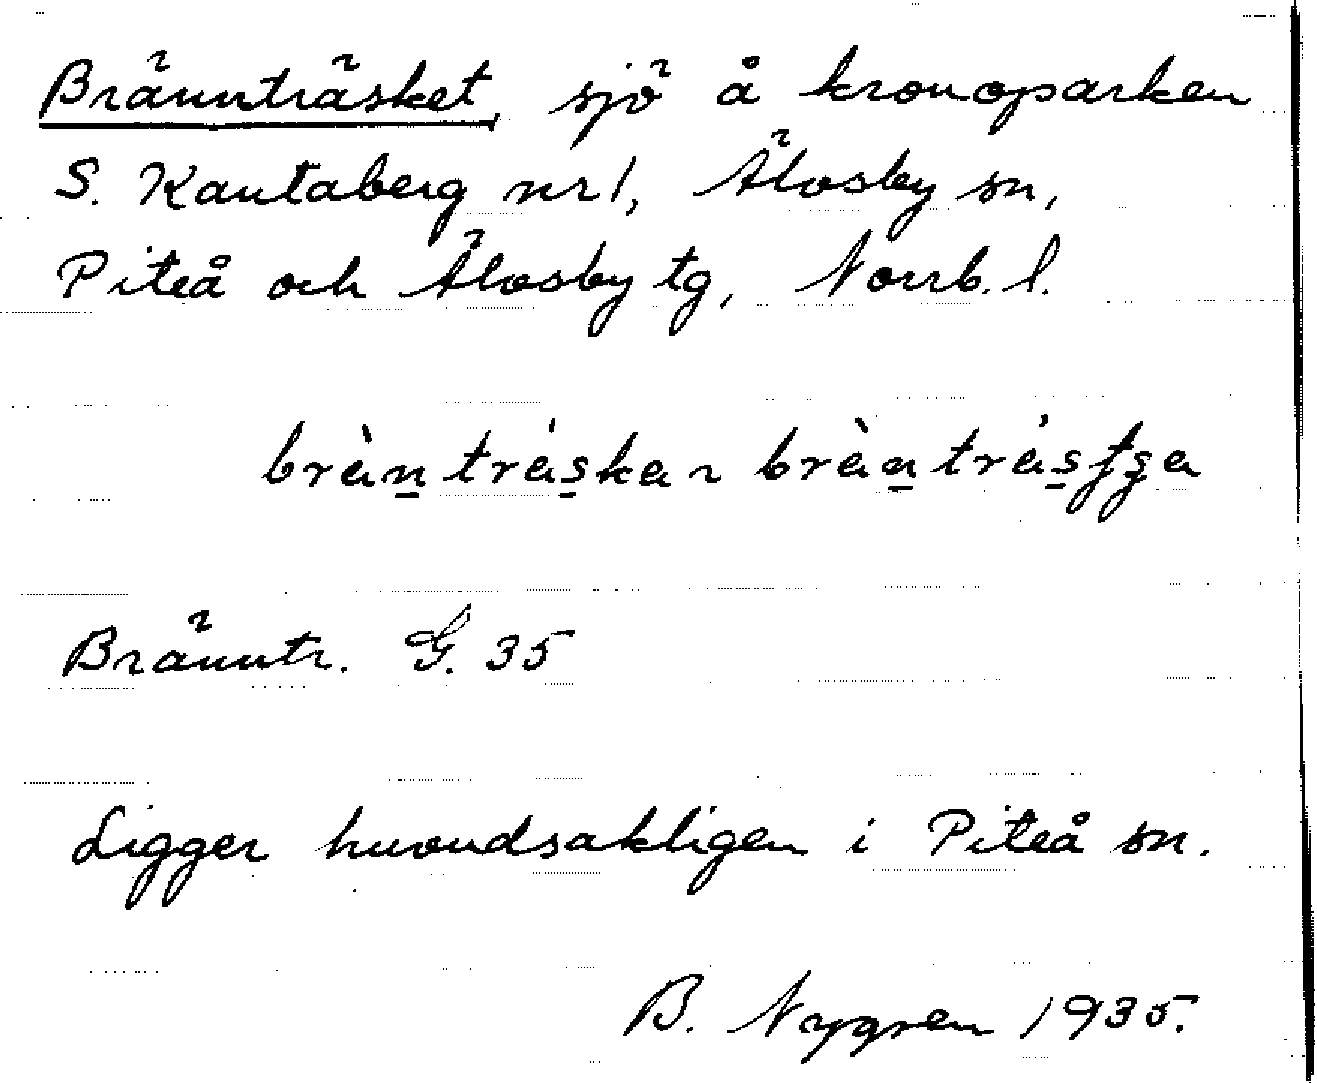 Brännträsket, sjö å kronoparken
S. Kantaberg nr 1, Älvsby sn,
Piteå och Älvsby tg, Norrb. l.
brä̀n träska ~ brä̀n
Bränntr. G. 35
Ligger huvudsakligen i Piteå sn.
B. Nygren 1935.